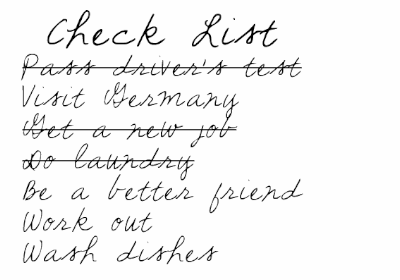 Check List
Pass driver's test
Visit Germany
Get a new job
Do laundry
Be a better friend
Work out
Wash dishes